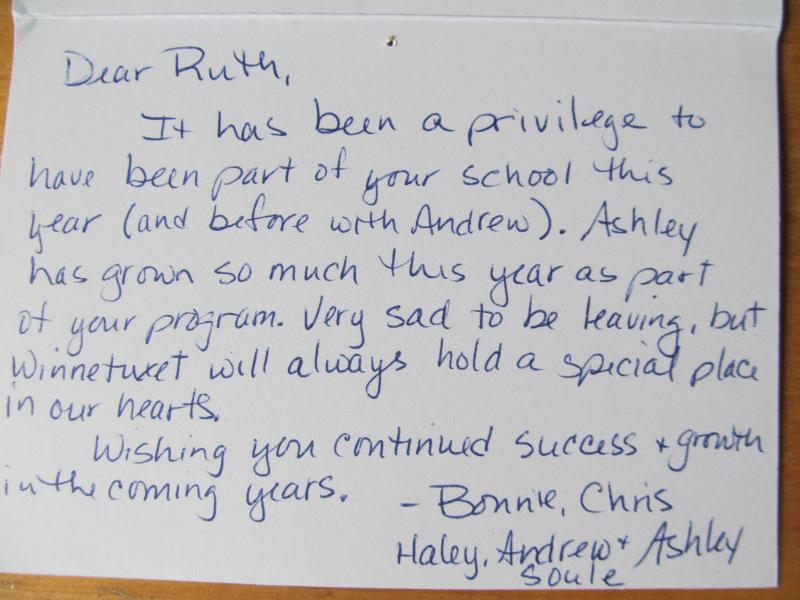 Dear Ruth,
It has been a privilege to
have been part of your school this
year (and before with Andrew). Ashley
has grown so much this year as part
of your program. Very sad to be leaving, but
Winnetuxet will always hold a special place
in our hearts.
Wishing you continued success + growth
in the coming years. - Bonnie, Chris
Haley, Andrew + Ashley
Soule